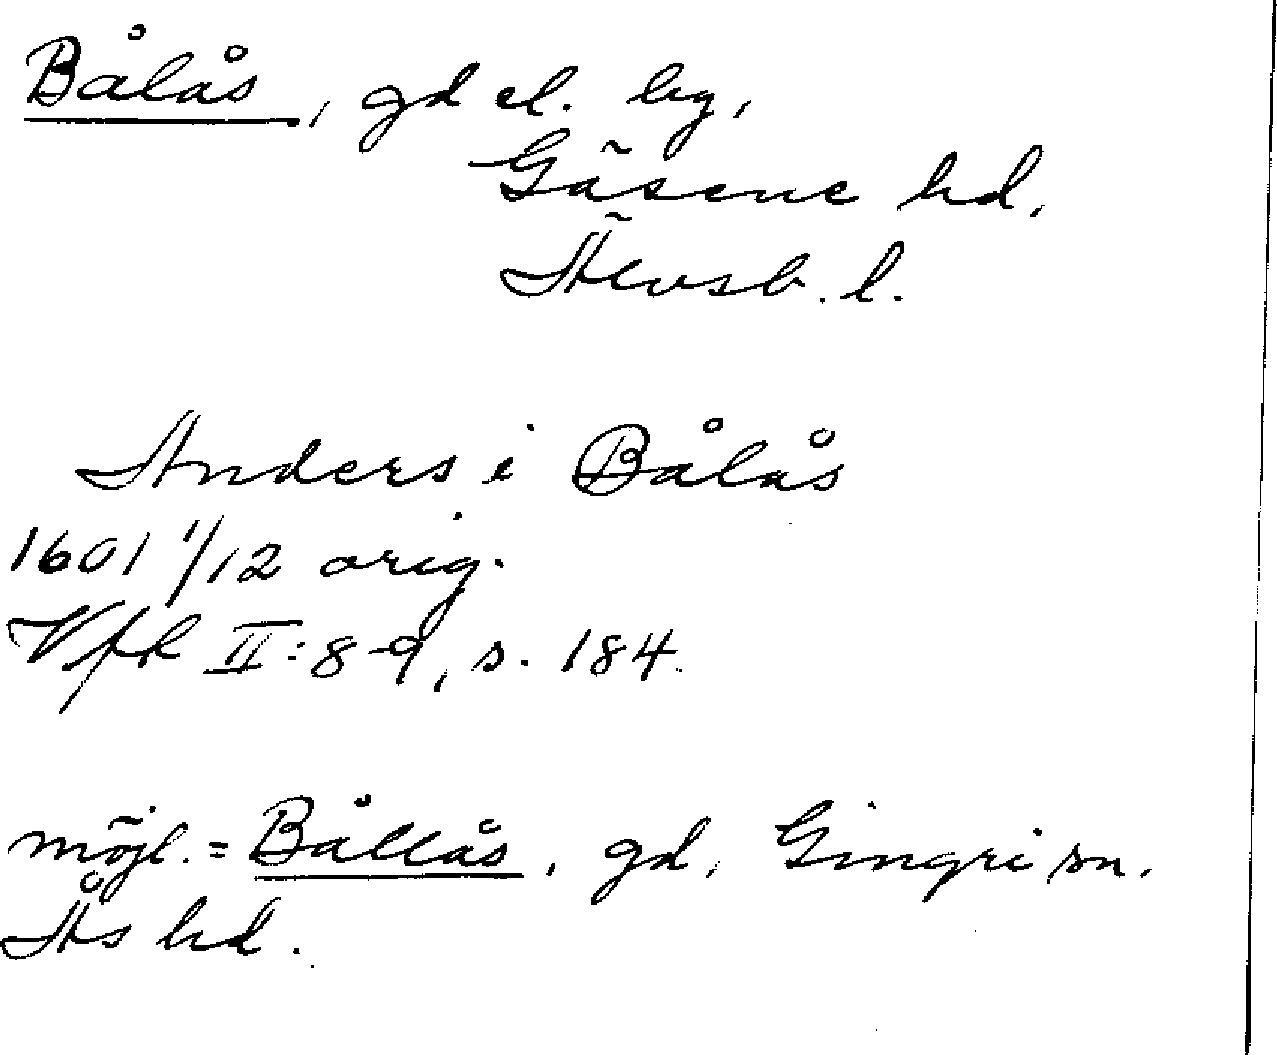 Bålås, gd el. by,
Gäsene hd,
Älvsb. l.
Anders i Bålås
1601 1/12 orig.
VfR II:8-9, s. 184.
möjl. = Bållås, gd, Gingri sn,
Ås hd.